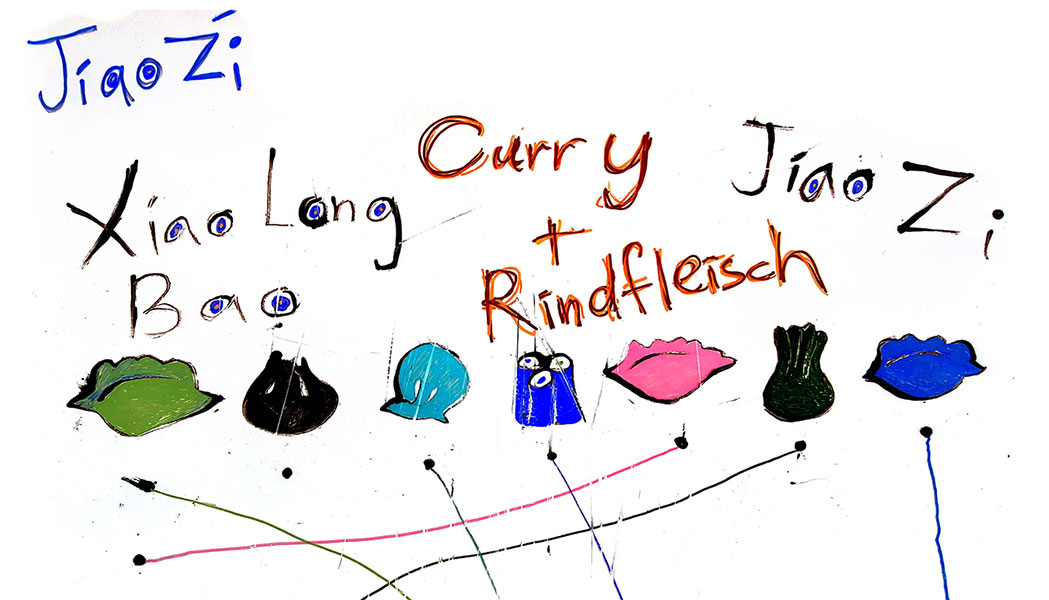 Jiao Zi
Xiao Long
Bao
Curry
+
Rindfleisch
Jiao Zi